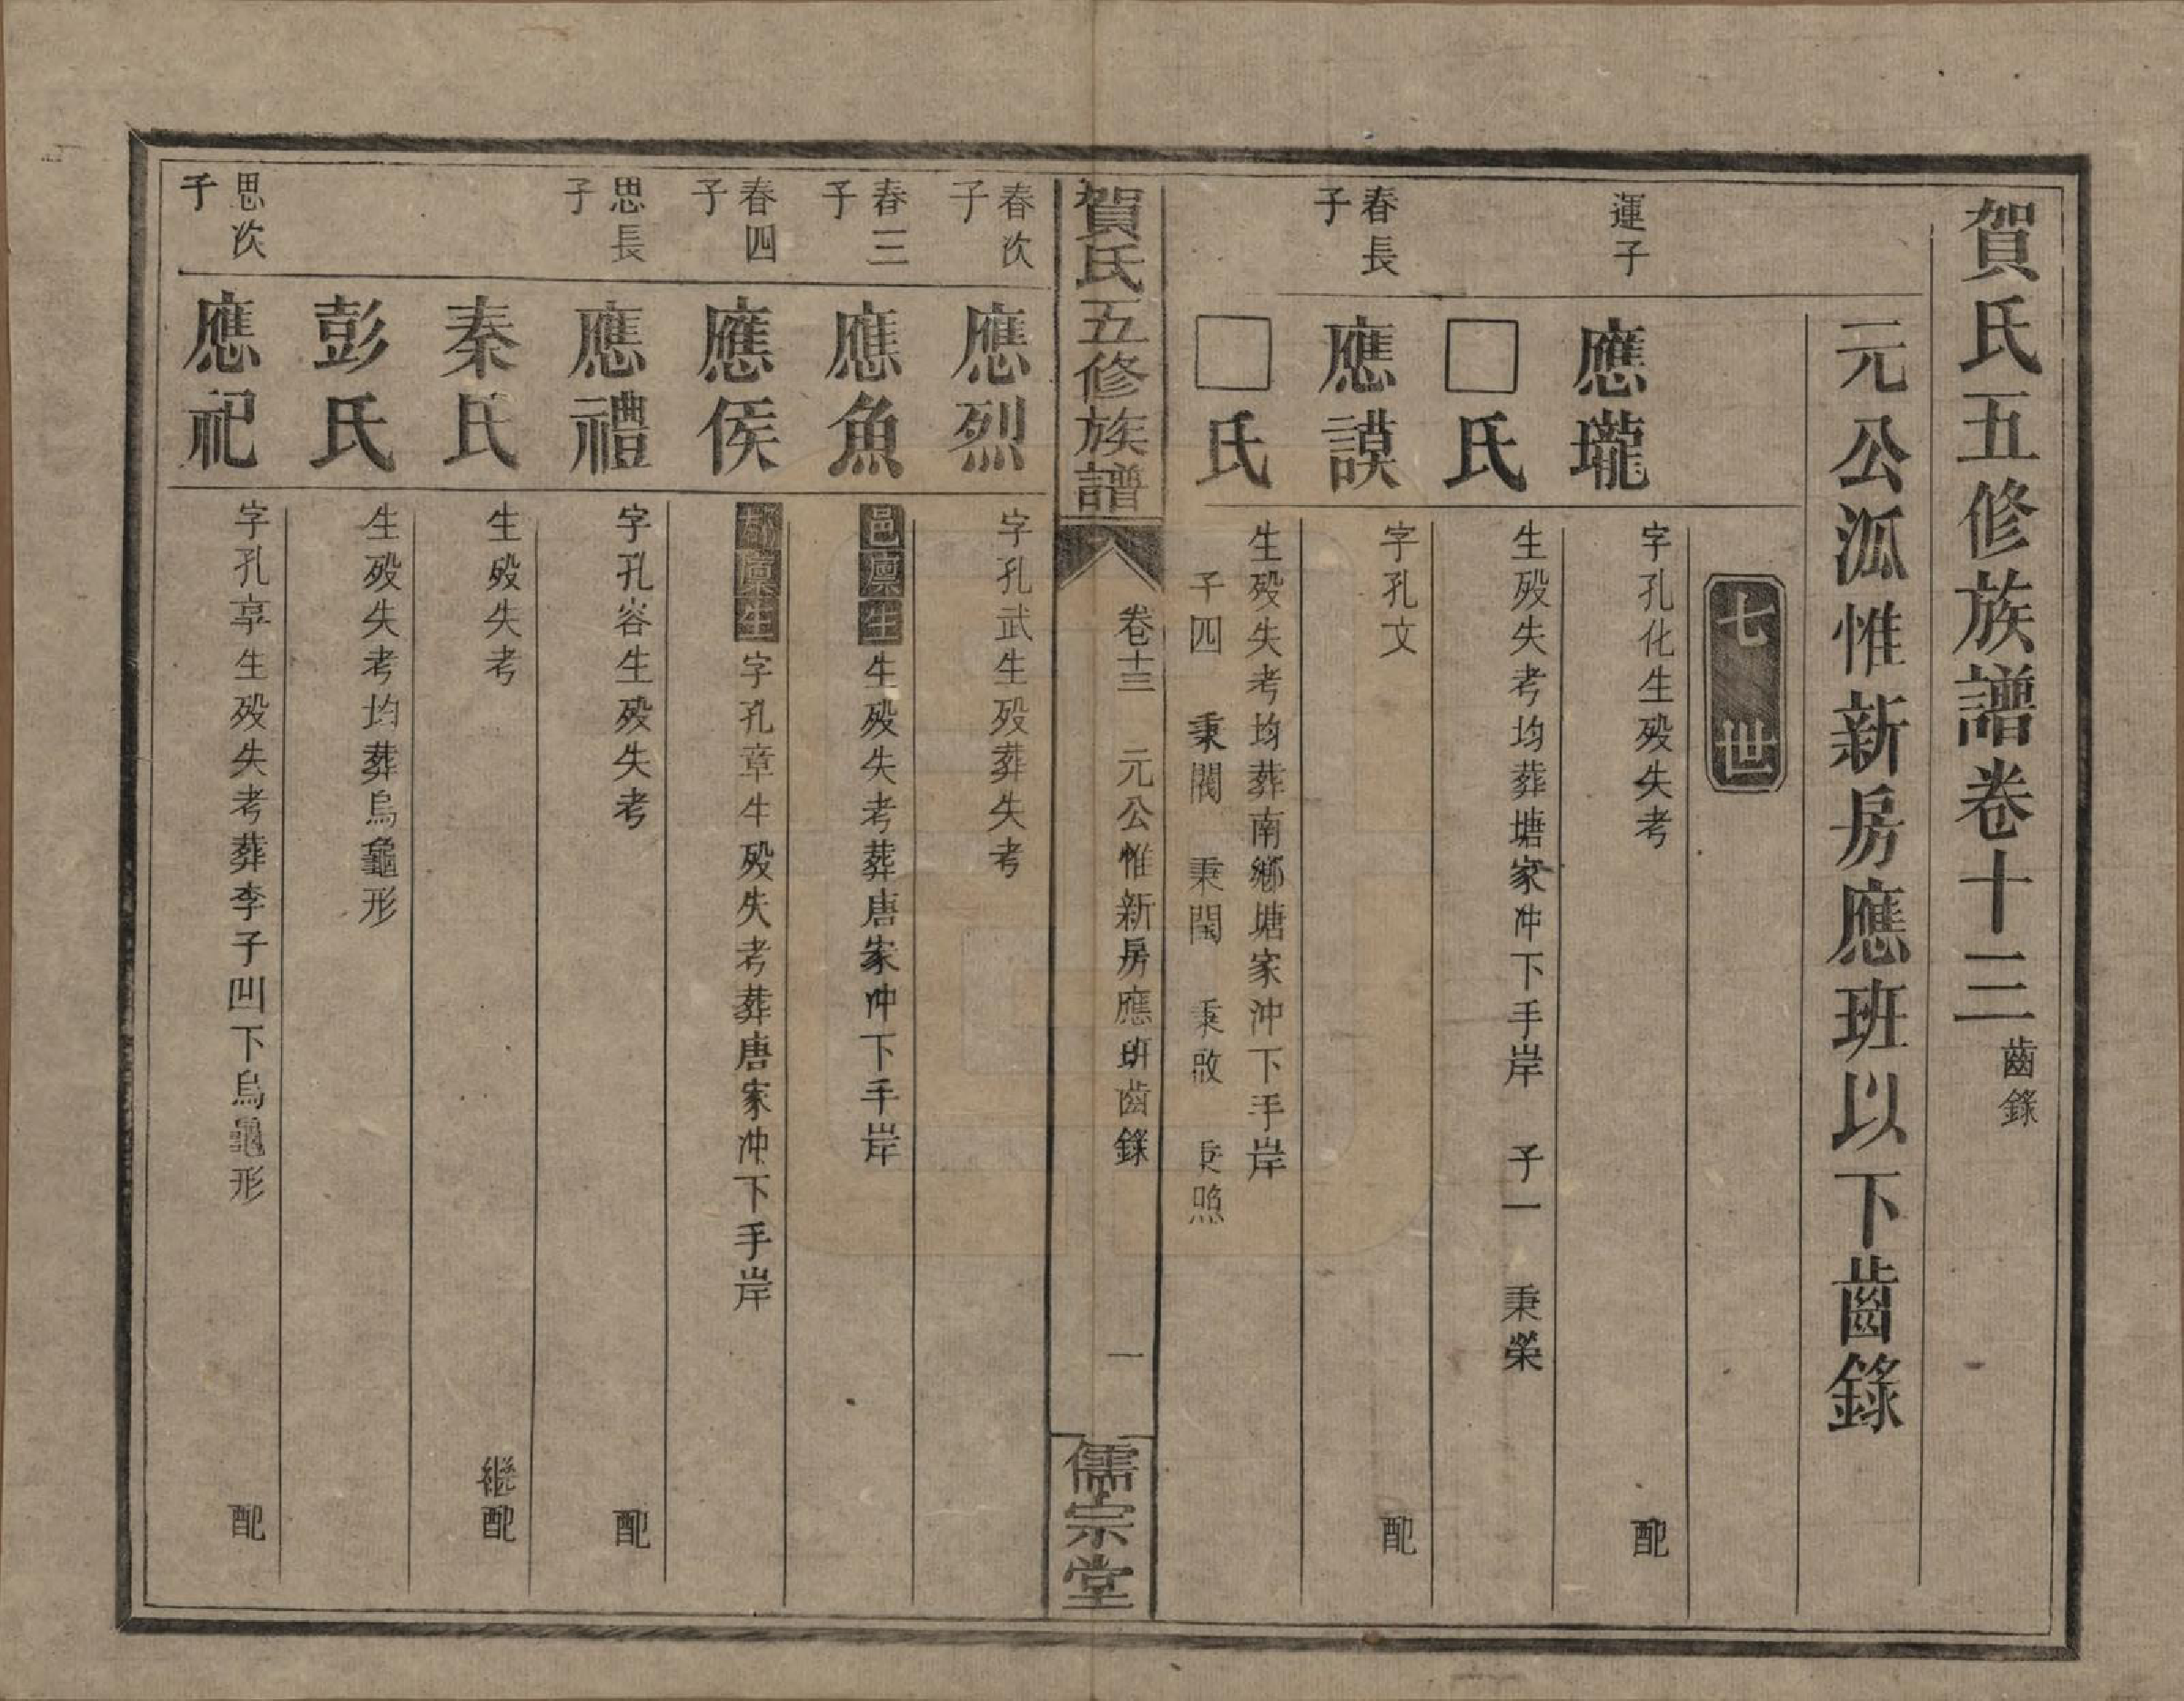 賀氏五修族譜卷十三 齒錄
元公派惟新房應班以下齒錄
七世
運子 應瓏 字孔化生殁失考 配
□氏 生殁失考均葬塘家冲下手岸 子一 秉榮
春長子 應謨 字孔文 配
□氏 生殁失考均葬南鄉塘家冲下手岸
子四 秉閣 秉閩 秉啟 秉照
賀氏五修族譜 卷十三 元公惟新房應班齒錄 一 儒宗堂
春次子 應烈 字孔武生殁葬失考
春三子 應魚 邑廩生 生殁失考葬唐家冲下手岸
春四子 應侯 郡廩生 字孔章生殁失考葬唐家冲下手岸
思長子 應禮 字孔容生殁失考 配
秦氏 生殁失考 繼配
彭氏 生殁失考均葬烏龜形
思次子 應祀 字孔享生殁失考葬李子凹下烏龜形 配